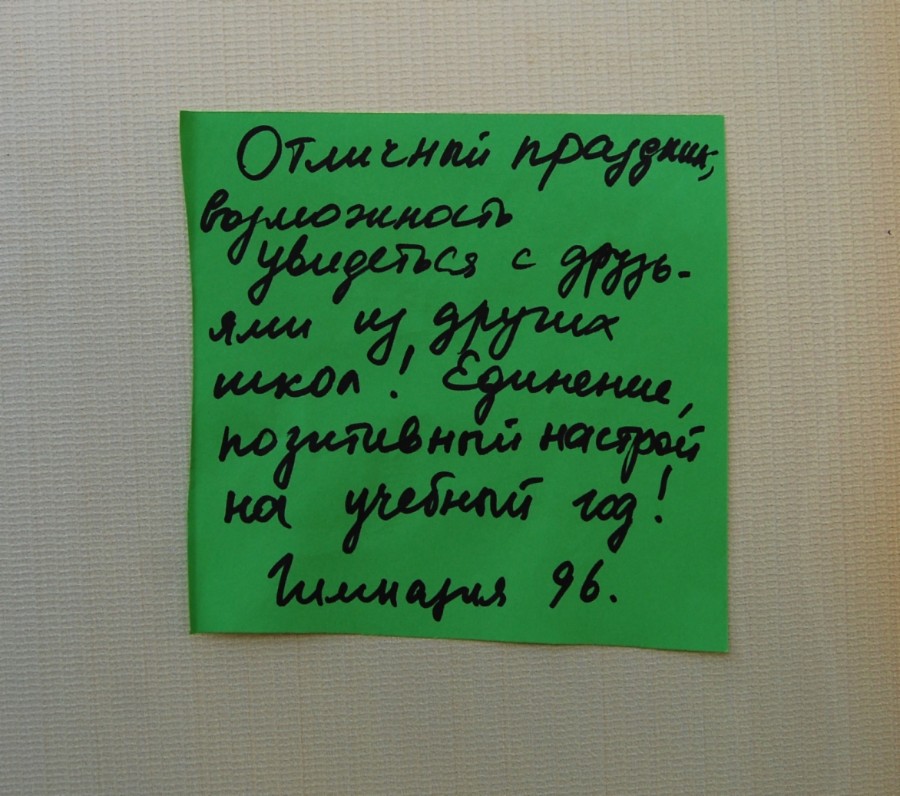 Отличный праздник,
возможность
увидеться с друзь-
ями из других
школ! Единение,
позитивный настрой
на учебный год!
Гимназия 96.